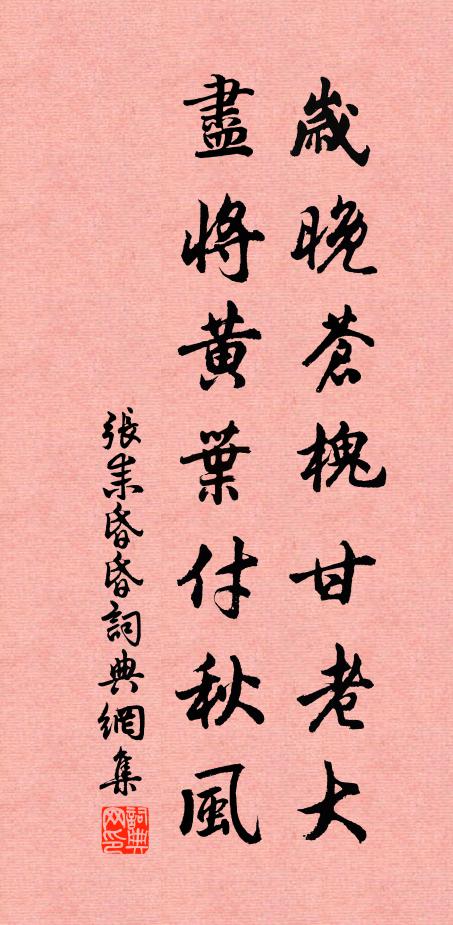 歲晚蒼槐甘老大
盡將黃葉付秋風
張耒昏昏詞典網集
詞典网印